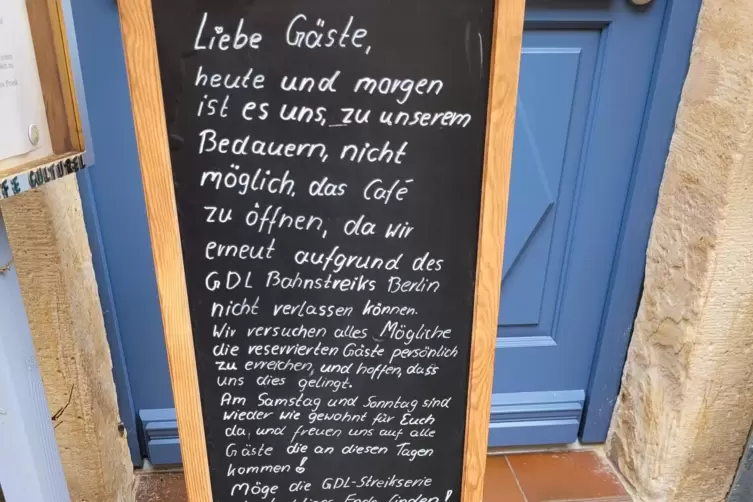 Liebe Gäste,
heute und morgen
ist es uns, zu unserem
Bedauern, nicht
möglich, das Café
zu öffnen, da wir
erneut aufgrund des
GDL Bahnstreiks Berlin
nicht verlassen können.
Wir versuchen alles Mögliche
die reservierten Gäste persönlich
zu erreichen, und hoffen, dass
uns dies gelingt.
Am Samstag und Sonntag sind
wieder wie gewohnt für Euch
da, und freuen uns auf alle
Gäste die an diesen Tagen
kommen!
Möge die GDL-Streikserie
Ende finden!
CULTUREL